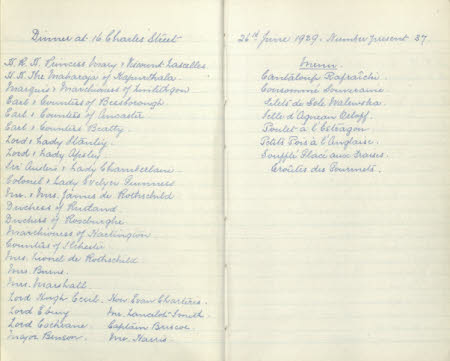 Dinner at 16 Charles Street
H.R.H. Princess Mary & Viscount Lascelles
H.H. The Maharaja of Kapurthala.
Marquis & Marchioness of Linlithgow
Earl & Countess of Bessborough.
Earl & Countess of Ancaster
Earl & Countess Beatty.
Lord & Lady Stanley.
Lord & Lady Apsley.
Sir Austen & Lady Chamberlain.
Colonel & Lady Evelyn Guinness
Mr. & Mrs. James de Rothschild
Duchess of Rutland.
Duchess of Roxburghe.
Marchioness of Hartington.
Countess of Ilchester
Mrs. Lionel de Rothschild.
Mrs. Burns.
Mrs. Marshall.
Lord Hugh Cecil. Hon. Evan Charteris.
Lord Ebury Mr. Lancelot Smith.
Lord Cochrane Captain Briscoe.
Major Benson. Mr. Harris.
26th June 1929. Number present 37.
Menu.
Cantaloup Rafraîchi.
Consommé Souveraine.
Filets de Sole Walewska.
Selle d'Agneau Orloff.
Poulet à l'Estragon.
Petits Pois à l'Anglaise.
Soufflé Glacé aux Fraises.
Croûtes des Gourmets.